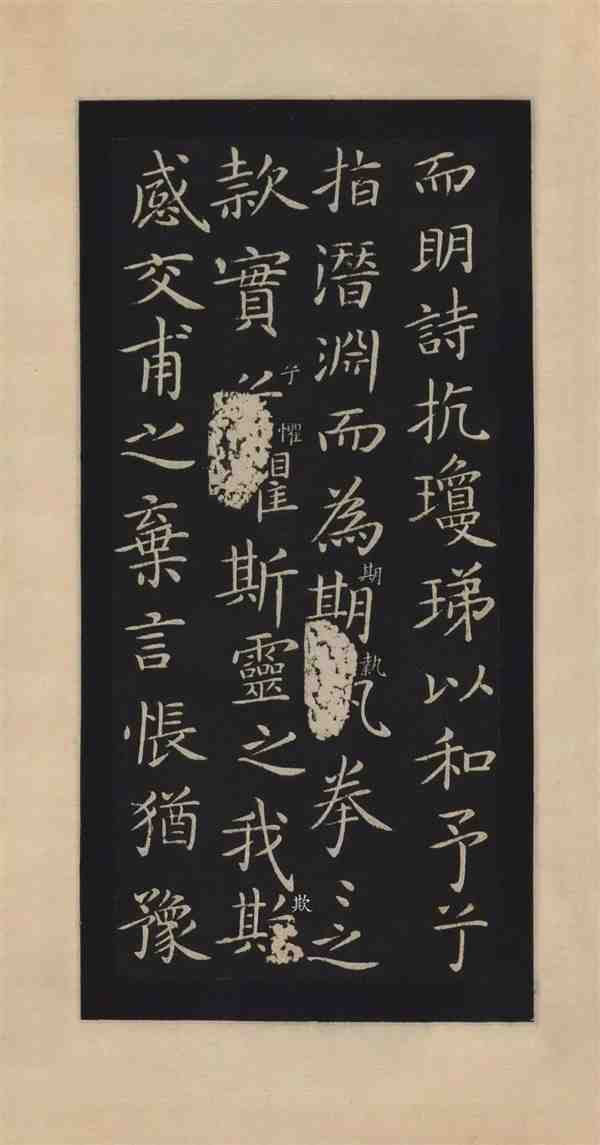 而明詩抗瓊珶以和予兮
指潛淵而為期執拳〻之
期執
款實兮懼斯靈之我欺
兮懼欺
感交甫之棄言悵猶豫